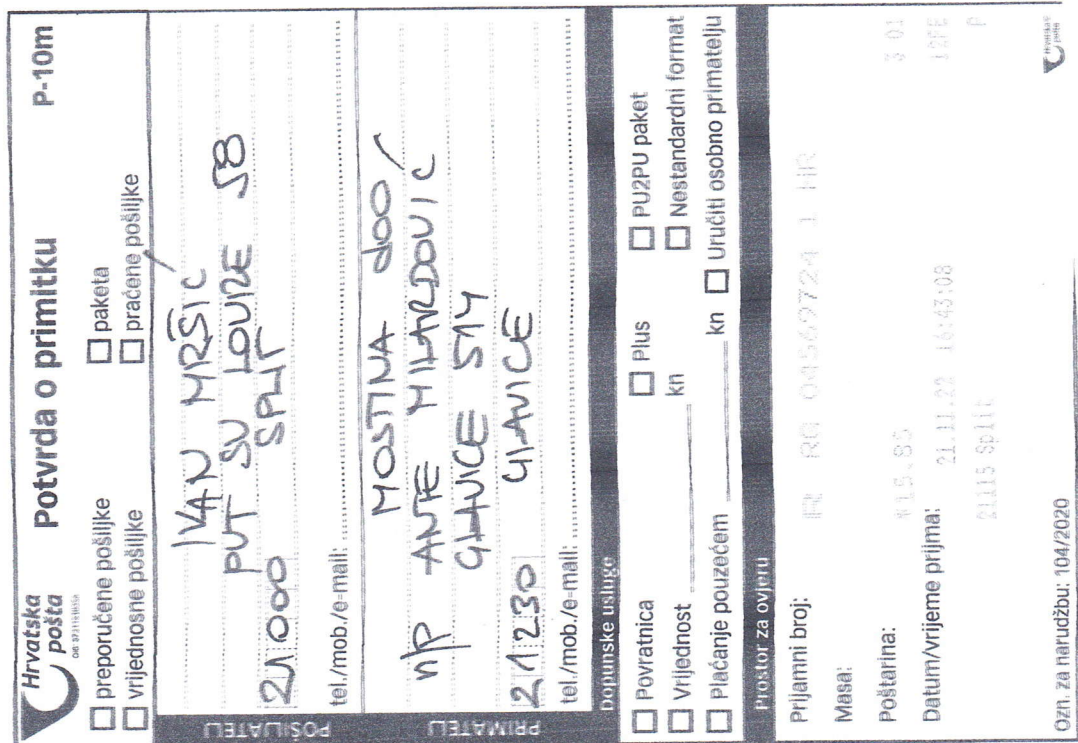 Hrvatska pošta
Potvrda o primitku
P-10m
preporučene pošiljke
paketa
vrijednosne pošiljke
praćene pošiljke
POŠILJATELJ
IVAN MRŠIĆ
PUT SV LOVRE 58
21000 SPLIT
tel./mob./e-mail:
PRIMATELJ
MOSTINA doo
n/p ANTE MILARDOVIĆ
GLAVICE 514
21230 GLAVICE
tel./mob./e-mail:
Dopunske usluge
Povratnica
Plus
PU2PU paket
Vrijednost kn
Nestandardni format
Plaćanje pouzećem kn
Uručiti osobno primatelju
Prostor za ovjeru
Prijamni broj: RG 04569724 1 HR
Masa:
Poštarina: *15.80
Datum/vrijeme prijma: 21.11.22 16:43:08
21115 Split P
Ozn. za narudžbu: 104/2020
Hrvatska pošta